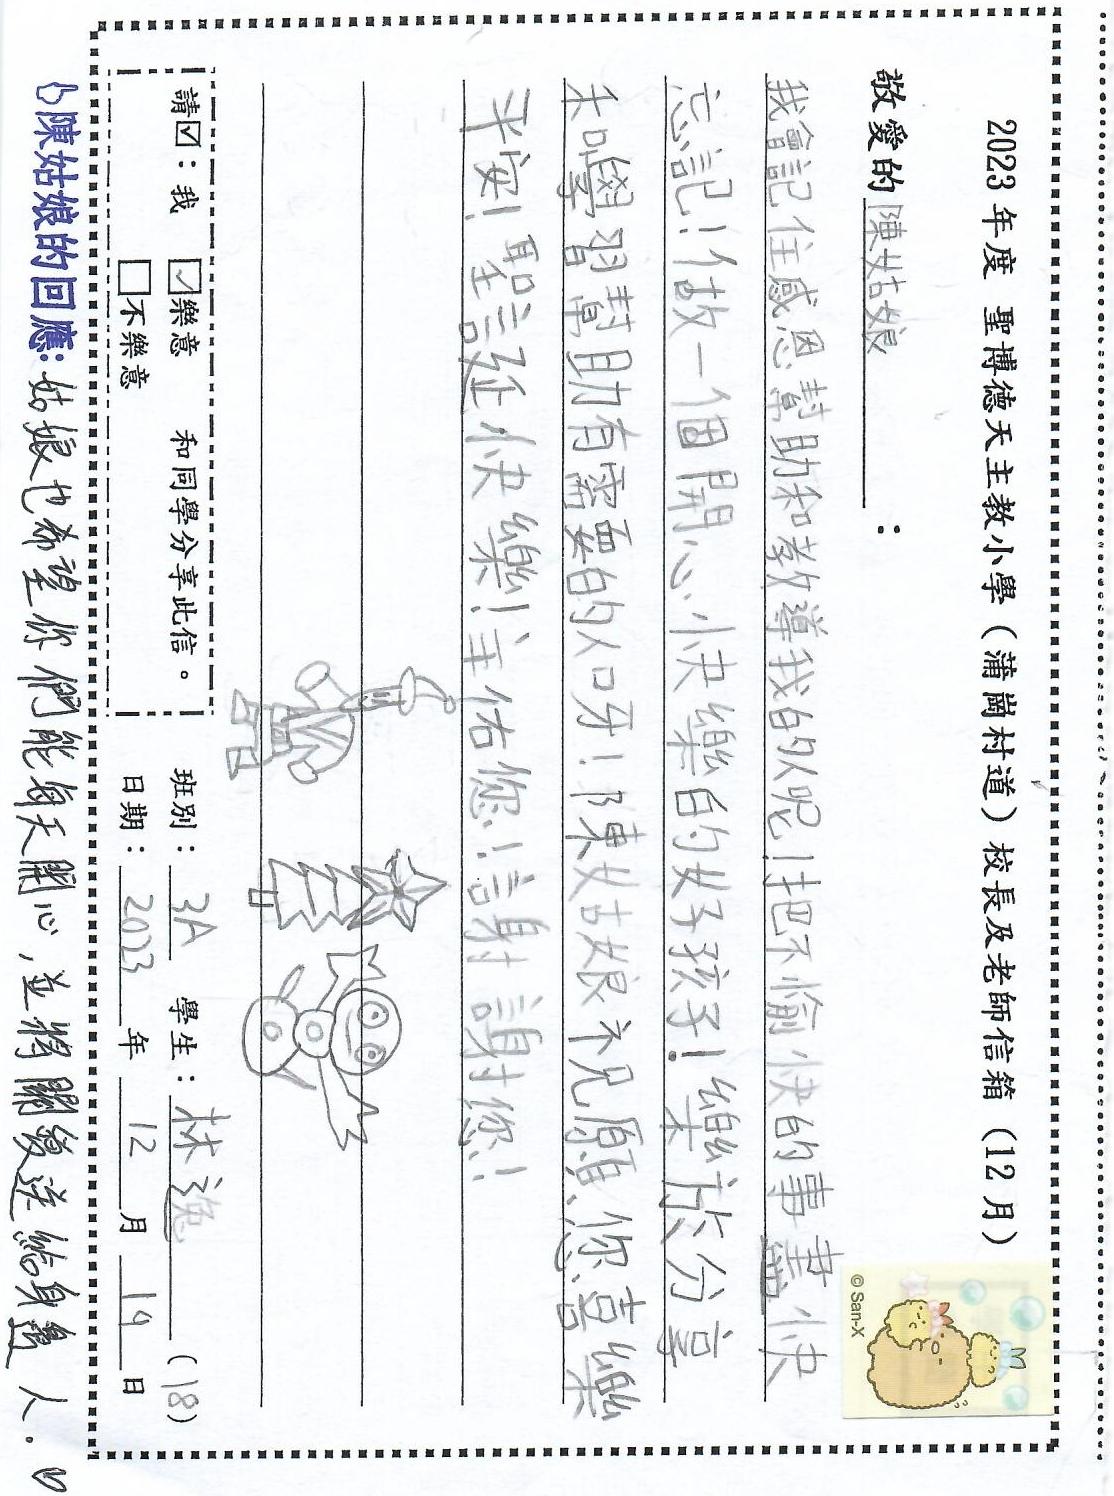 2023 年度 聖博德天主教小學（蒲崗村道）校長及老師信箱（12 月）
敬愛的陳姑娘：
© San-X
我會記住感恩幫助和教導我的人呢！把不愉快的事盡快
忘記！做一個開心快樂的女孩子！樂於分享
和學習幫助有需要的人呀！陳姑娘祝願您喜樂
平安！聖誕快樂！主佑您！謝謝您！
請☑：我 ☑樂意 和同學分享此信。
□不樂意
班別：3A 學生：林逸 (18)
日期：2023 年 12 月 19 日
陳姑娘的回應：姑娘也希望你們能每天開心，並將關愛送給身邊人。